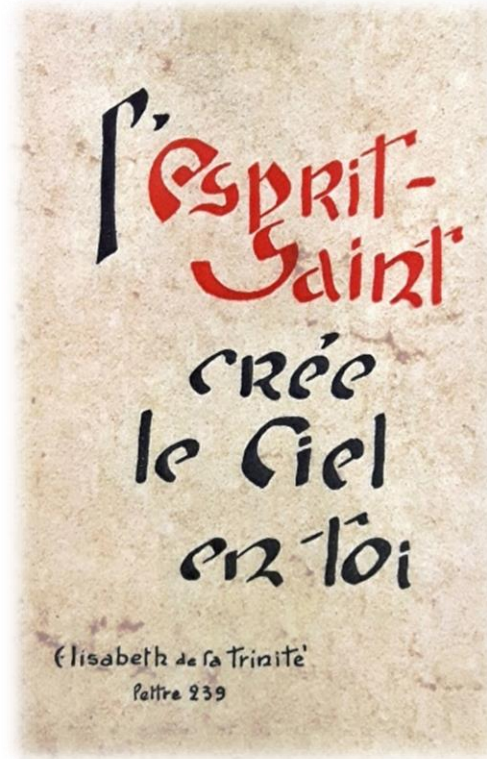 l'esprit-
Saint
crée
le Ciel
en toi
Elisabeth de la Trinité
lettre 239